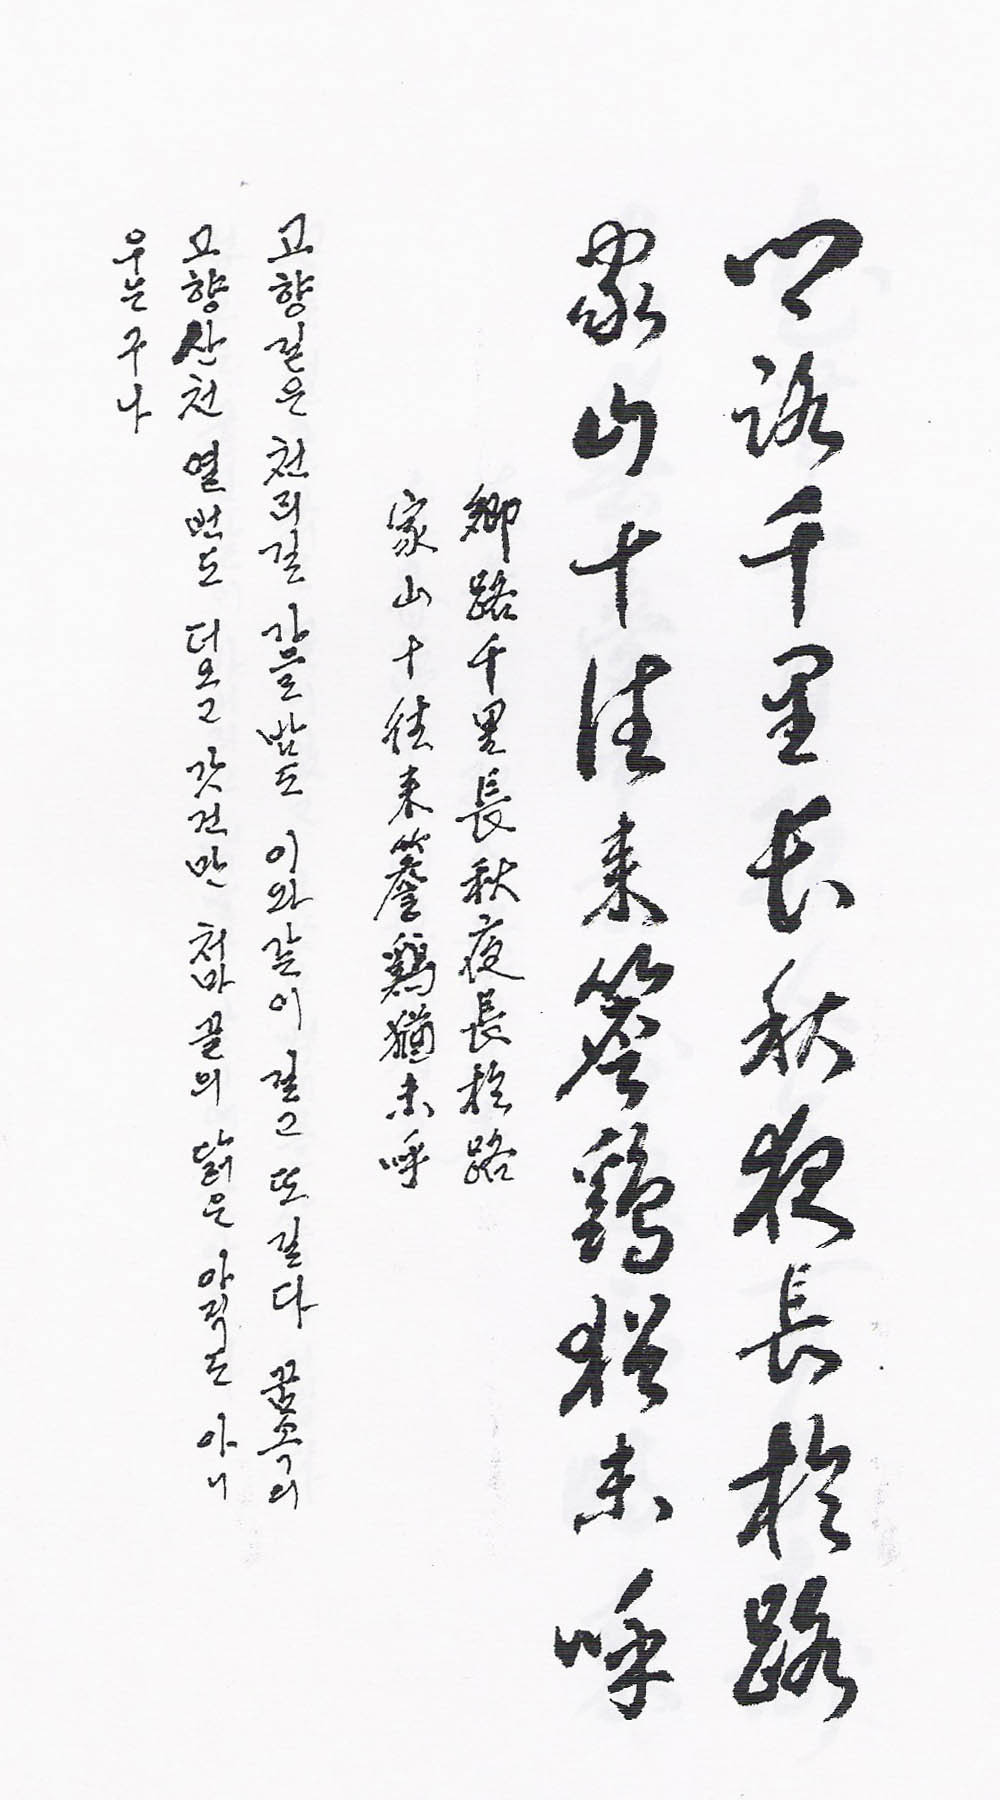 鄕路千里長秋夜長於路
家山十往來簷鷄猶未呼
鄕路千里長秋夜長於路
家山十往來簷鷄猶未呼
고향길은 천리길 가을밤도 이와같이 길고 또 길다 꿈속의
고향산천 열번도 더오고 갓건만 처마 끝의 닭은 아직도 아니
우는구나